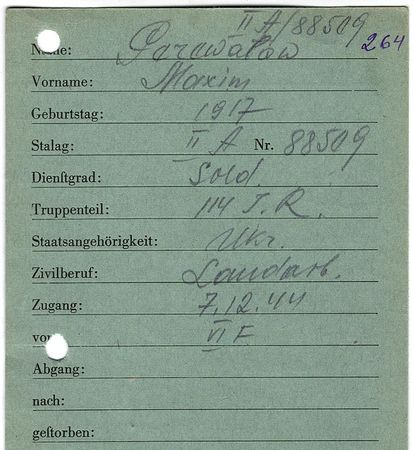 II A/88509
264
Name: Perewalow
Vorname: Maxim
Geburtstag: 1917
Stalag: II A Nr. 88509
Dienſtgrad: Sold.
Truppenteil: 114 I. R.
Staatsangehörigkeit: Ukr.
Zivilberuf: Landarb.
Zugang: 7.12.44
von VI F
Abgang:
nach:
geſtorben: